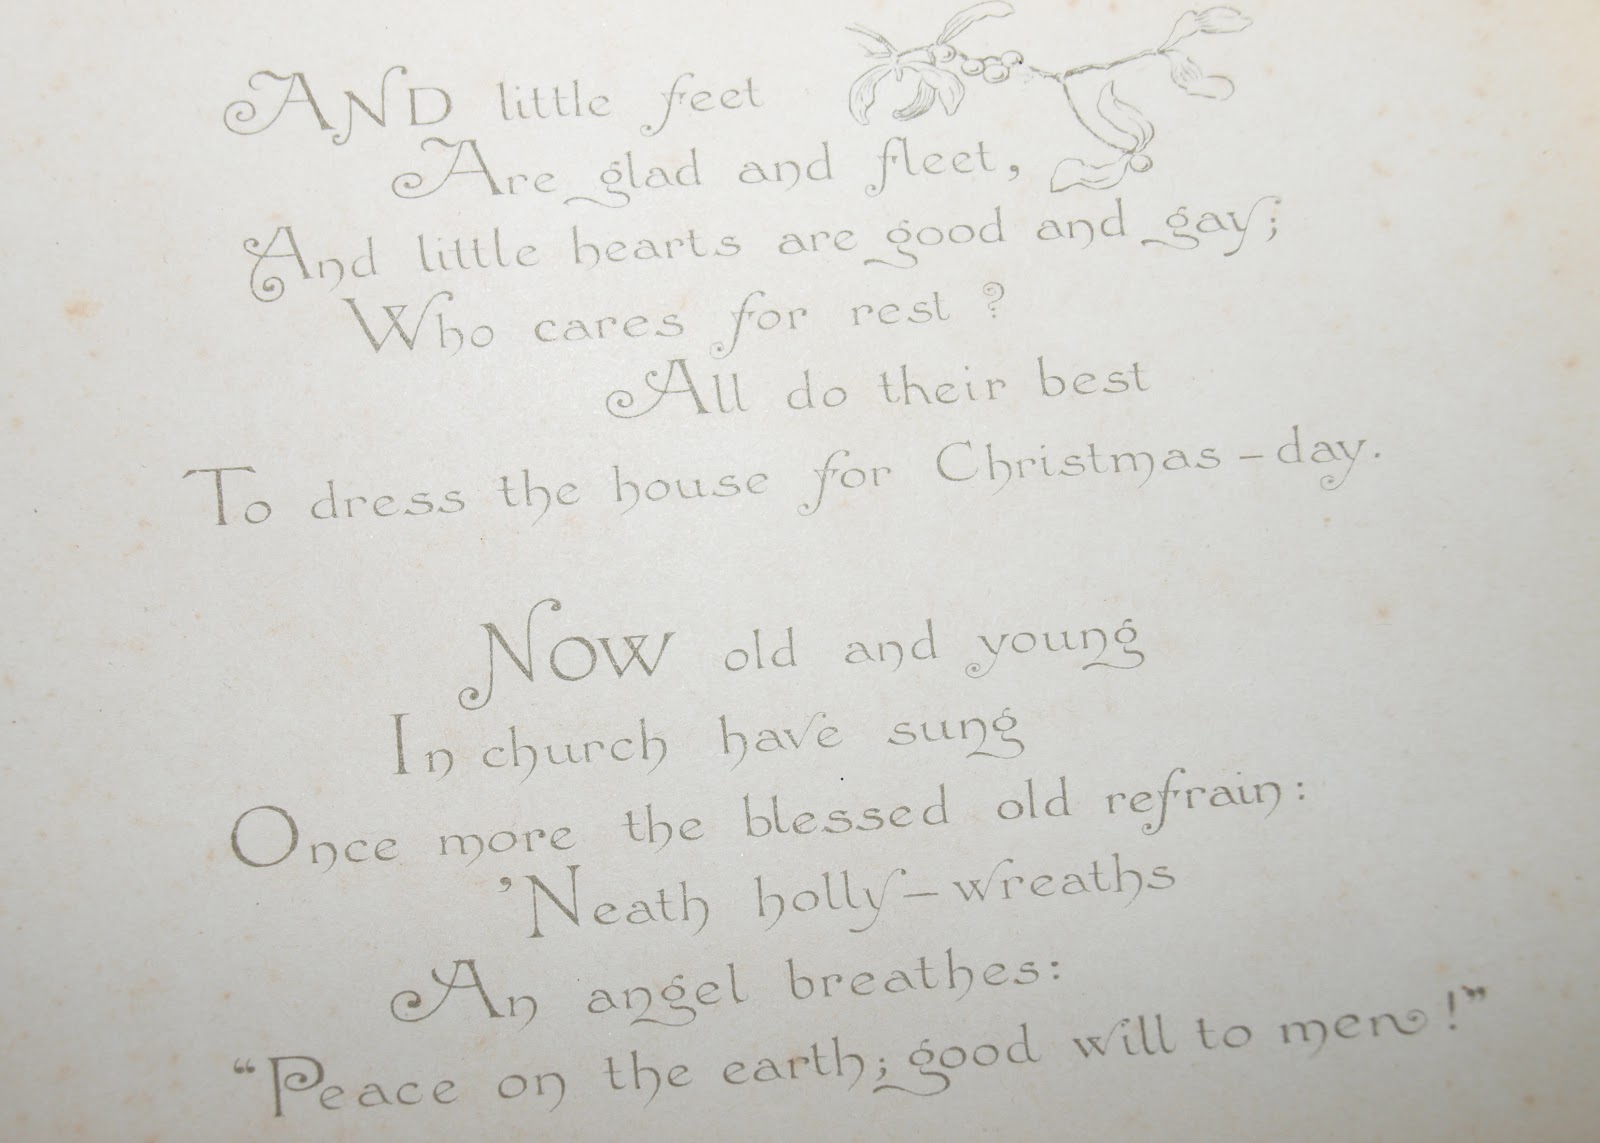 AND little feet
Are glad and fleet,
And little hearts are good and gay;
Who cares for rest ?
All do their best
To dress the house for Christmas-day.
NOW old and young
In church have sung
Once more the blessed old refrain:
'Neath holly-wreaths
An angel breathes:
"Peace on the earth; good will to men!"